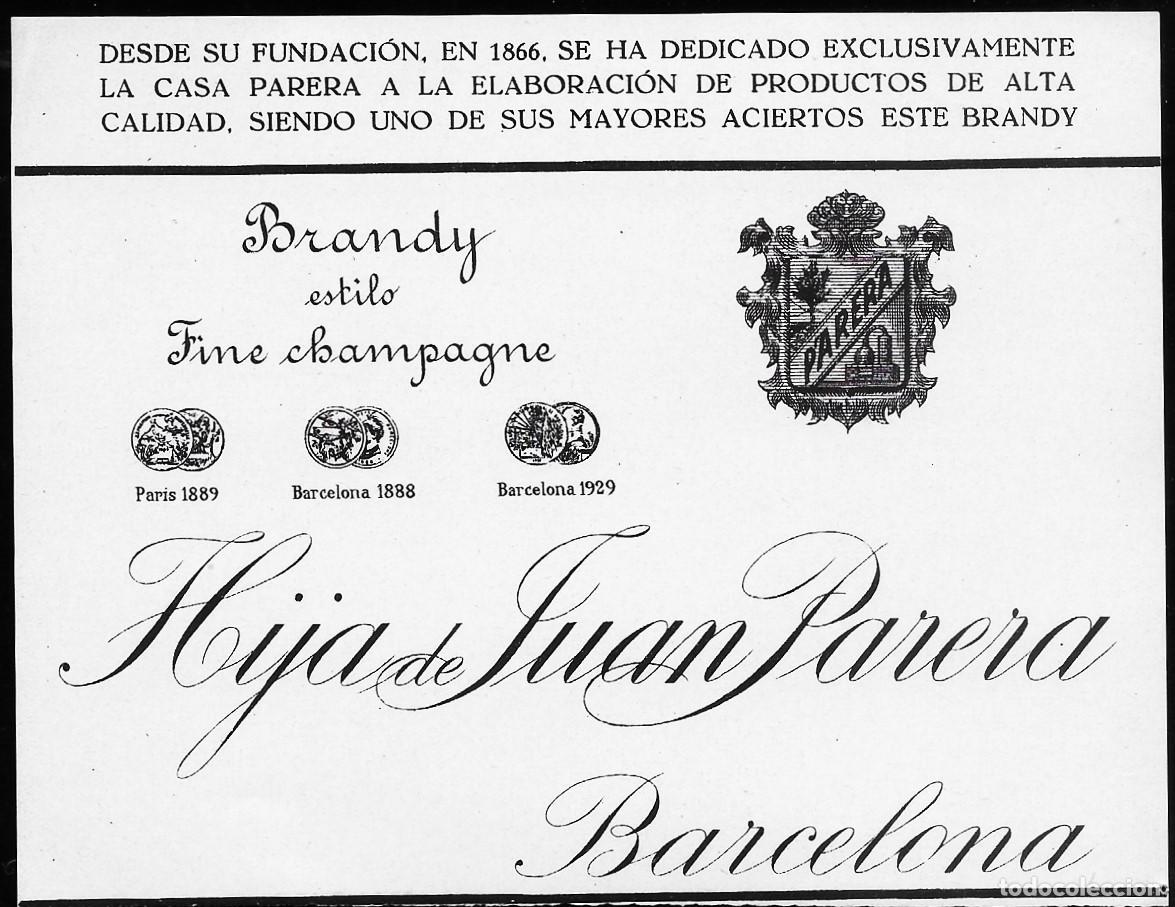 DESDE SU FUNDACIÓN, EN 1866, SE HA DEDICADO EXCLUSIVAMENTE
LA CASA PARERA A LA ELABORACIÓN DE PRODUCTOS DE ALTA
CALIDAD, SIENDO UNO DE SUS MAYORES ACIERTOS ESTE BRANDY
Brandy
estilo
Fine champagne
PARERA
Paris 1889
Barcelona 1888
Barcelona 1929
Hija de Juan Parera
Barcelona
todocoleccion